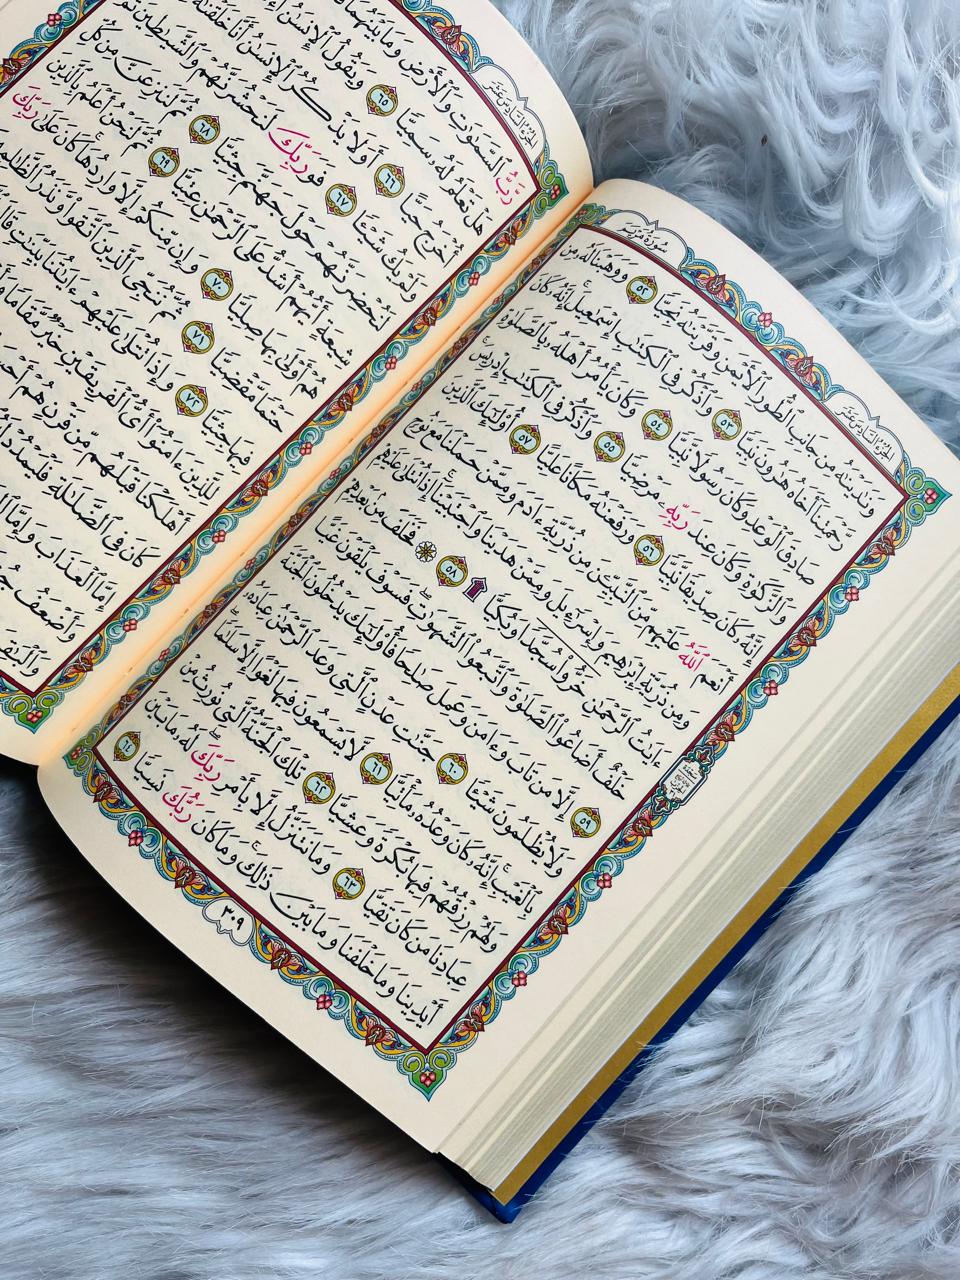 سُورَةُ مَرْيَمَ
الجُزْءُ السَّادِسَ عَشَرَ
وَنَٰدَيْنَٰهُ مِن جَانِبِ ٱلطُّورِ ٱلْأَيْمَنِ وَقَرَّبْنَٰهُ نَجِيًّا ٥٢ وَوَهَبْنَا لَهُۥ مِن
رَّحْمَتِنَآ أَخَاهُ هَٰرُونَ نَبِيًّا ٥٣ وَٱذْكُرْ فِى ٱلْكِتَٰبِ إِسْمَٰعِيلَ ۚ إِنَّهُۥ كَانَ
صَادِقَ ٱلْوَعْدِ وَكَانَ رَسُولًا نَّبِيًّا ٥٤ وَكَانَ يَأْمُرُ أَهْلَهُۥ بِٱلصَّلَوٰةِ
وَٱلزَّكَوٰةِ وَكَانَ عِندَ رَبِّهِۦ مَرْضِيًّا ٥٥ وَٱذْكُرْ فِى ٱلْكِتَٰبِ إِدْرِيسَ ۚ
إِنَّهُۥ كَانَ صِدِّيقًا نَّبِيًّا ٥٦ وَرَفَعْنَٰهُ مَكَانًا عَلِيًّا ٥٧ أُو۟لَٰٓئِكَ ٱلَّذِينَ
أَنْعَمَ ٱللَّهُ عَلَيْهِم مِّنَ ٱلنَّبِيِّۦنَ مِن ذُرِّيَّةِ ءَادَمَ وَمِمَّنْ حَمَلْنَا مَعَ نُوحٍ
وَمِن ذُرِّيَّةِ إِبْرَٰهِيمَ وَإِسْرَٰٓءِيلَ وَمِمَّنْ هَدَيْنَا وَٱجْتَبَيْنَآ ۚ إِذَا تُتْلَىٰ عَلَيْهِمْ
ءَايَٰتُ ٱلرَّحْمَٰنِ خَرُّوا۟ سُجَّدًا وَبُكِيًّا ۩ ٥٨ ۞ فَخَلَفَ مِنۢ بَعْدِهِمْ
خَلْفٌ أَضَاعُوا۟ ٱلصَّلَوٰةَ وَٱتَّبَعُوا۟ ٱلشَّهَوَٰتِ ۖ فَسَوْفَ يَلْقَوْنَ غَيًّا
٥٩ إِلَّا مَن تَابَ وَءَامَنَ وَعَمِلَ صَٰلِحًا فَأُو۟لَٰٓئِكَ يَدْخُلُونَ ٱلْجَنَّةَ
وَلَا يُظْلَمُونَ شَيْـًٔا ٦٠ جَنَّٰتِ عَدْنٍ ٱلَّتِى وَعَدَ ٱلرَّحْمَٰنُ عِبَادَهُۥ
بِٱلْغَيْبِ ۚ إِنَّهُۥ كَانَ وَعْدُهُۥ مَأْتِيًّا ٦١ لَّا يَسْمَعُونَ فِيهَا لَغْوًا إِلَّا سَلَٰمًا ۖ
وَلَهُمْ رِزْقُهُمْ فِيهَا بُكْرَةً وَعَشِيًّا ٦٢ تِلْكَ ٱلْجَنَّةُ ٱلَّتِى نُورِثُ مِنْ
عِبَادِنَا مَن كَانَ تَقِيًّا ٦٣ وَمَا نَتَنَزَّلُ إِلَّا بِأَمْرِ رَبِّكَ ۖ لَهُۥ مَا بَيْنَ
أَيْدِينَا وَمَا خَلْفَنَا وَمَا بَيْنَ ذَٰلِكَ ۚ وَمَا كَانَ رَبُّكَ نَسِيًّا ٦٤
٣٠٩
الجُزْءُ السَّادِسَ عَشَرَ
رَّبُّ ٱلسَّمَٰوَٰتِ وَٱلْأَرْضِ وَمَا بَيْنَهُمَا
هَلْ تَعْلَمُ لَهُۥ سَمِيًّا ٦٥ وَيَقُولُ ٱلْإِنسَٰنُ
أُخْرَجُ حَيًّا ٦٦ أَوَلَا يَذْكُرُ ٱلْإِنسَٰنُ أَنَّا خَلَقْنَٰهُ
وَلَمْ يَكُ شَيْـًٔا ٦٧ فَوَرَبِّكَ لَنَحْشُرَنَّهُمْ وَٱلشَّيَٰطِينَ ثُمَّ
لَنُحْضِرَنَّهُمْ حَوْلَ جَهَنَّمَ جِثِيًّا ٦٨ ثُمَّ لَنَنزِعَنَّ مِن كُلِّ
شِيعَةٍ أَيُّهُمْ أَشَدُّ عَلَى ٱلرَّحْمَٰنِ عِتِيًّا ٦٩ ثُمَّ لَنَحْنُ أَعْلَمُ بِٱلَّذِينَ
هُمْ أَوْلَىٰ بِهَا صِلِيًّا ٧٠ وَإِن مِّنكُمْ إِلَّا وَارِدُهَا ۚ كَانَ عَلَىٰ رَبِّكَ
حَتْمًا مَّقْضِيًّا ٧١ ثُمَّ نُنَجِّى ٱلَّذِينَ ٱتَّقَوا۟ وَّنَذَرُ
فِيهَا جِثِيًّا ٧٢ وَإِذَا تُتْلَىٰ عَلَيْهِمْ ءَايَٰتُنَا بَيِّنَٰتٍ
لِلَّذِينَ ءَامَنُوٓا۟ أَىُّ ٱلْفَرِيقَيْنِ خَيْرٌ مَّقَامًا
أَهْلَكْنَا قَبْلَهُم مِّن قَرْنٍ هُمْ
كَانَ فِى ٱلضَّلَٰلَةِ فَلْيَمْدُدْ
إِمَّا ٱلْعَذَابَ وَإِمَّا
وَأَضْعَفُ